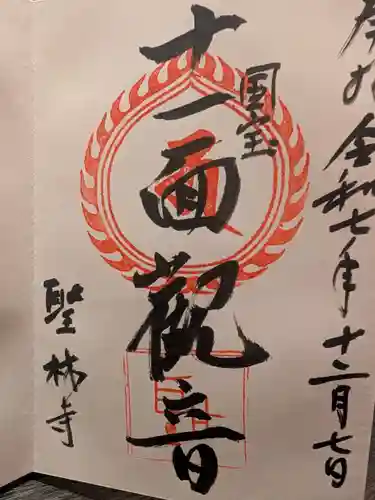 奉拝 令和七年十二月七日
国宝
十一面観音
聖林寺